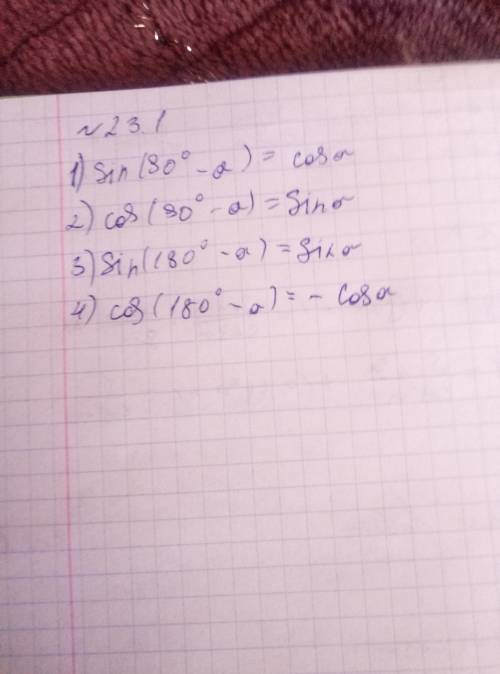 № 23.1
1) sin(90° - α) = cos α
2) cos(90° - α) = sin α
3) sin(180° - α) = sin α
4) cos(180° - α) = - cos α